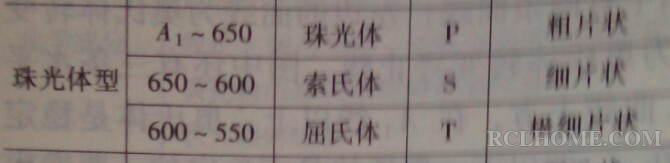 A₁~650 珠光体 P 粗片状
珠光体型 650~600 索氏体 S 细片状
600~550 屈氏体 T 极细片状
RCLHOME.COM